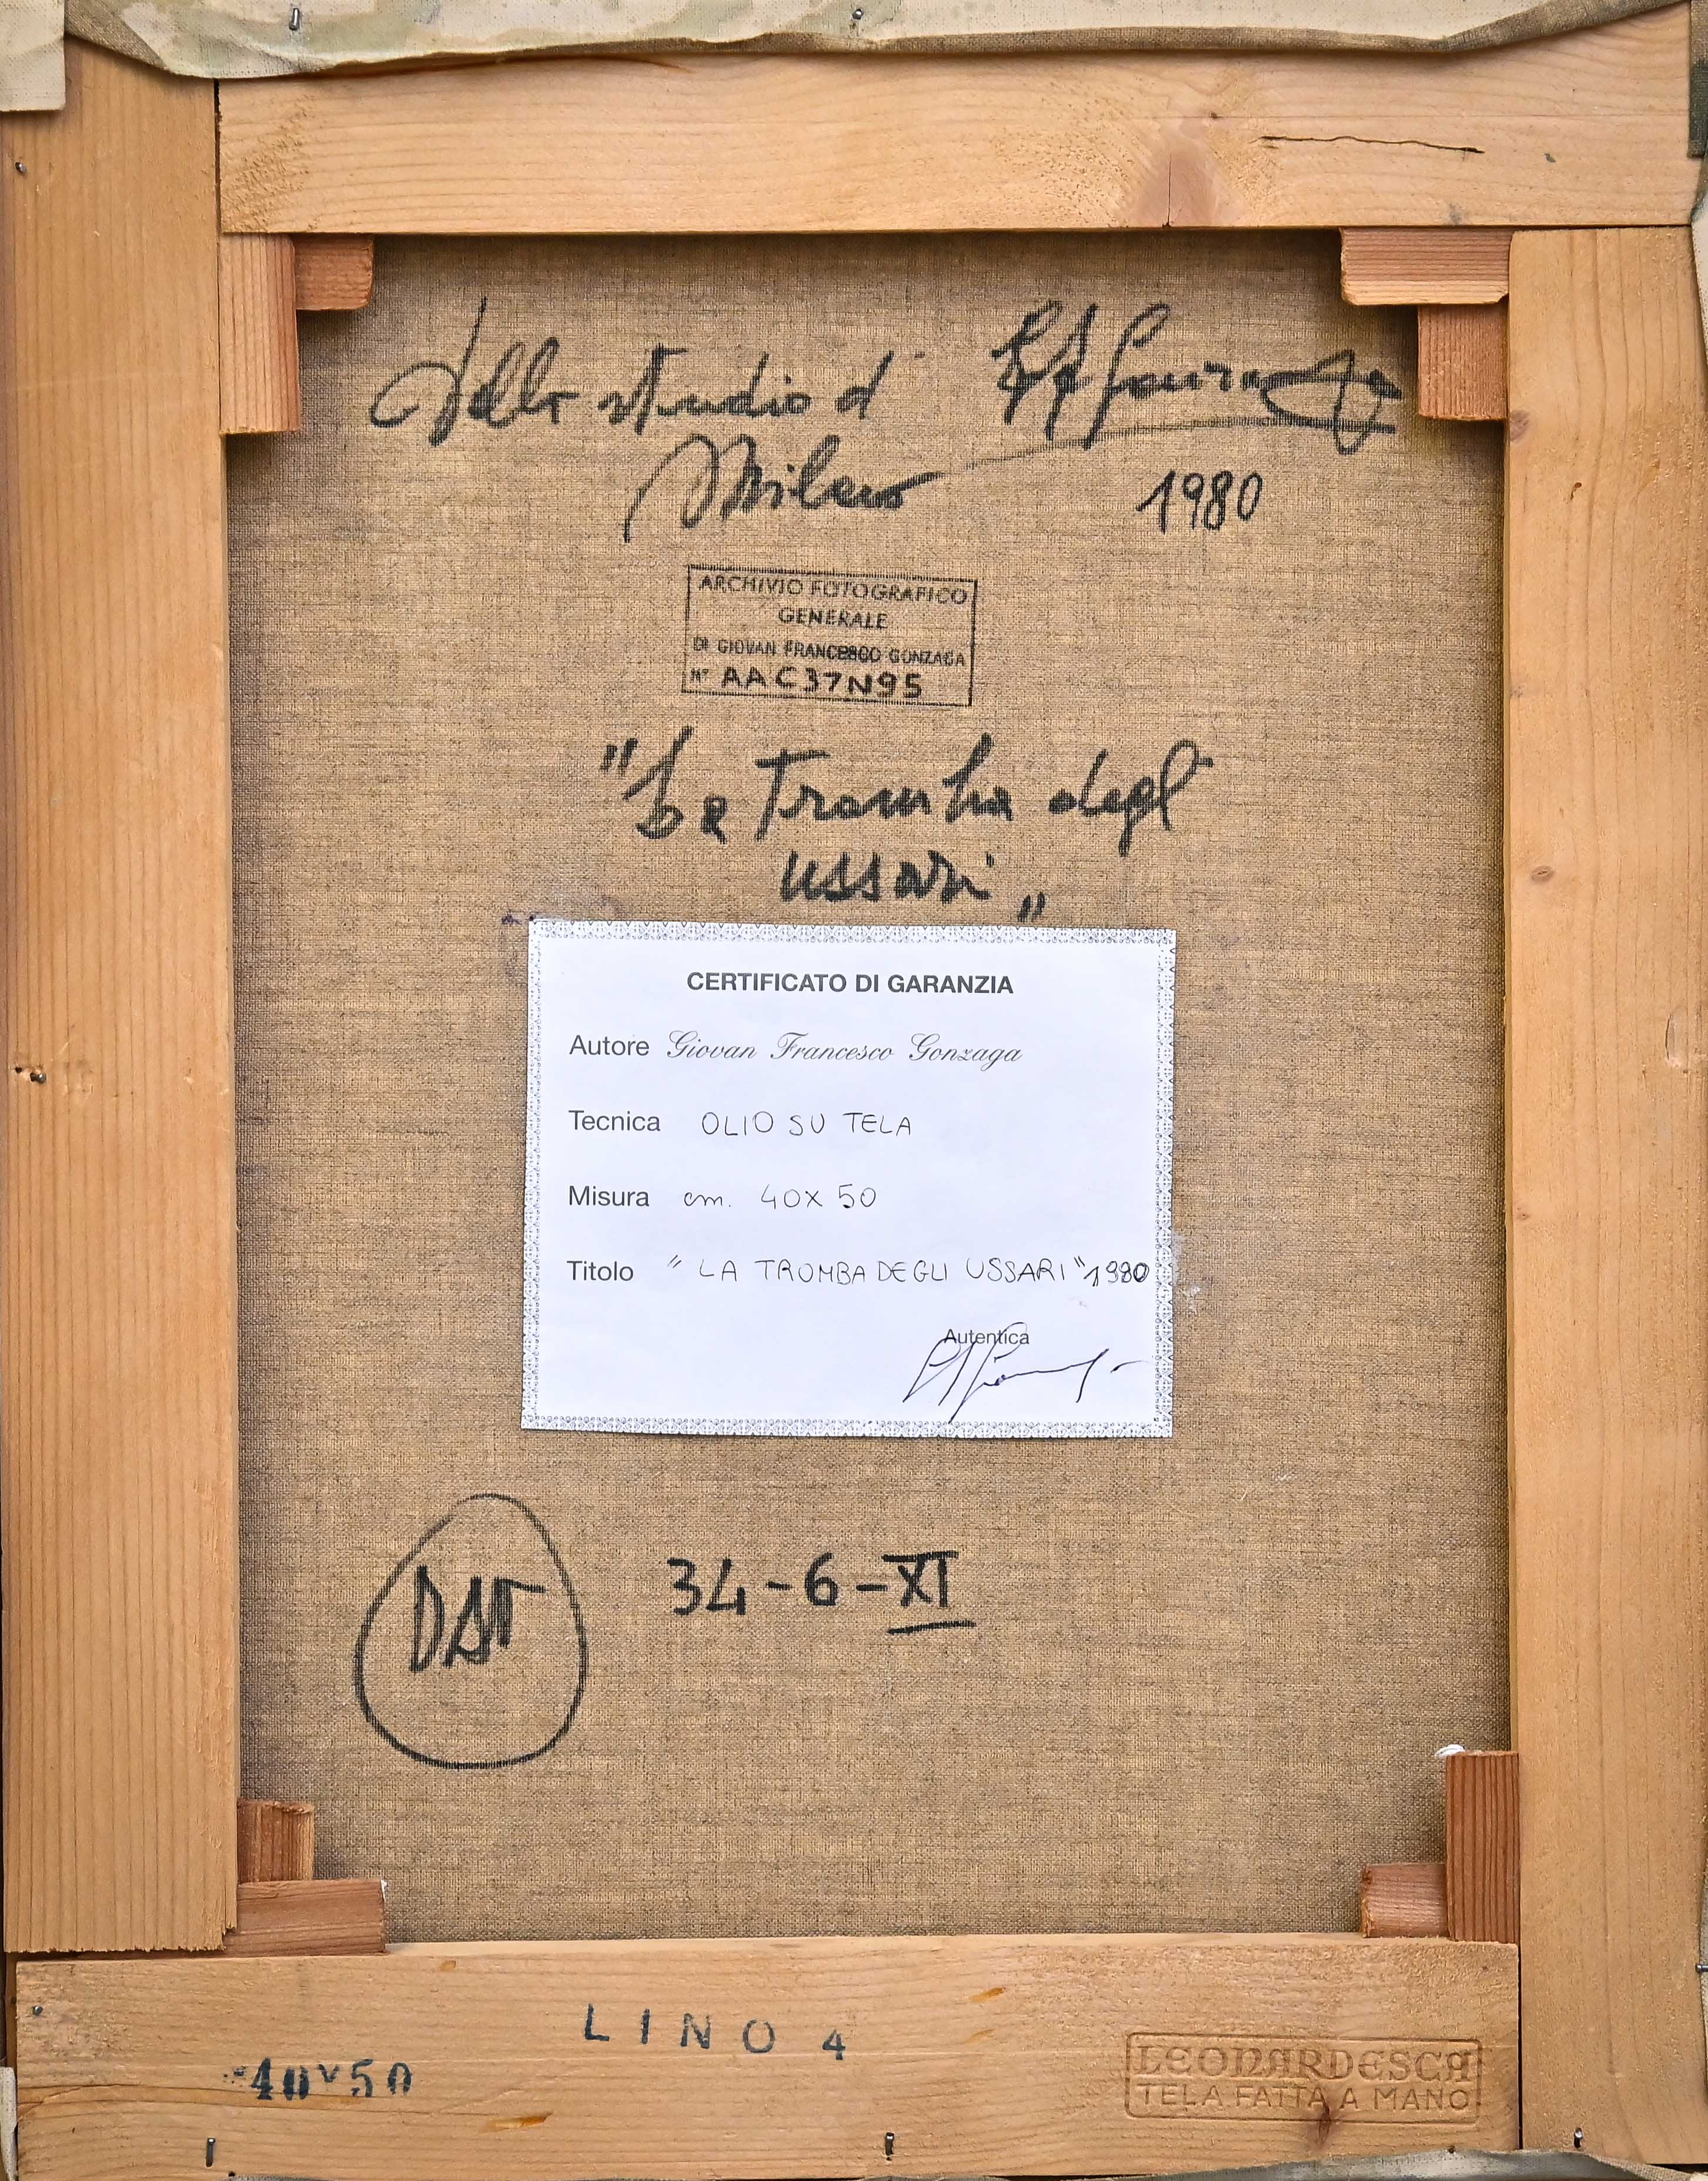 dallo studio di GFGonzaga
Milano 1980
ARCHIVIO FOTOGRAFICO
GENERALE
DI GIOVAN FRANCESCO GONZAGA
N° AAC37N95
"La Tromba degli
ussari"
CERTIFICATO DI GARANZIA
Autore Giovan Francesco Gonzaga
Tecnica OLIO SU TELA
Misura cm. 40X50
Titolo "LA TROMBA DEGLI USSARI" 1980
Autentica
34-6-XI
LINO 4
40X50
LEONARDESCA
TELA FATTA A MANO